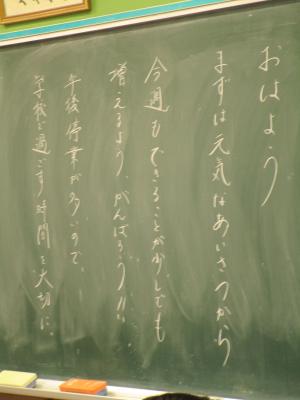 おはよう
まずは元気なあいさつから
今週もできることが少しでも
増えるよう、がんばろう!!
午後停業が多いので、
学校で過ごす時間を大切に。